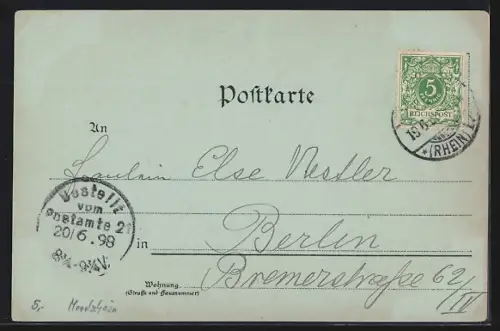 Postkarte
5
REICHSPOST
19 6
*(RHEIN)
An
Fräulein Else Nestler
Bestellt
vom
Postamte 2
20/6.98
8¼-9½V.
in Berlin
Bremerstraße 62
IV
Wohnung
(Straße und Hausnummer)
5,- Mondschein